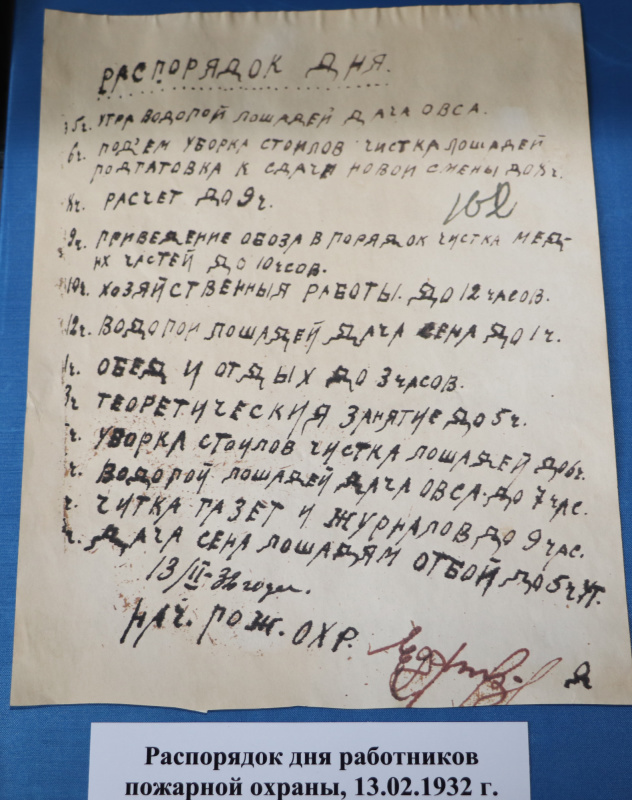 РАСПОРЯДОК ДНЯ.
5ч. УТРА ВОДОПОЙ ЛОШАДЕЙ ДАЧА ОВСА.
6ч. ПОДЪЕМ УБОРКА СТОИЛОВ ЧИСТКА ЛОШАДЕЙ
ПОДГАТОВКА К СДАЧИ НОВОЙ СМЕНЫ ДО 8ч.
8ч. РАСЧЕТ ДО 9ч.
102
9ч. ПРИВЕДЕНИЕ ОБОЗА В ПОРЯДОК ЧИСТКА МЕД-
НХ ЧАСТЕЙ ДО 10 ЧСОВ.
10ч. ХОЗЯЙСТВЕННЫЯ РАБОТЫ. ДО 12 ЧАСОВ.
12ч. ВОДОПОИ ЛОШАДЕЙ ДАЧА СЕНА ДО 1ч.
1ч. ОБЕД И ОТДЫХ ДО 3 ЧАСОВ.
3ч ТЕОРЕТИЧЕСКИЯ ЗАНЯТИЕ ДО 5ч.
ч. УБОРКА СТОИЛОВ ЧИСТКА ЛОШАДЕЙ ДО 6ч.
ч. ВОДОПОЙ ЛОШАДЕЙ ДАЧА ОВСА. ДО 7 ЧАС.
ч. ЧИТКА ГАЗЕТ И ЖУРНАЛОВ ДО 9 ЧАС.
ч. ДАЧА СЕНА ЛОШАДЯМ ОТБОЙ ДО 5ч УТ.
13/II-32 года.
НАЧ. ПОЖ. ОХР.
Распорядок дня работников
пожарной охраны, 13.02.1932 г.